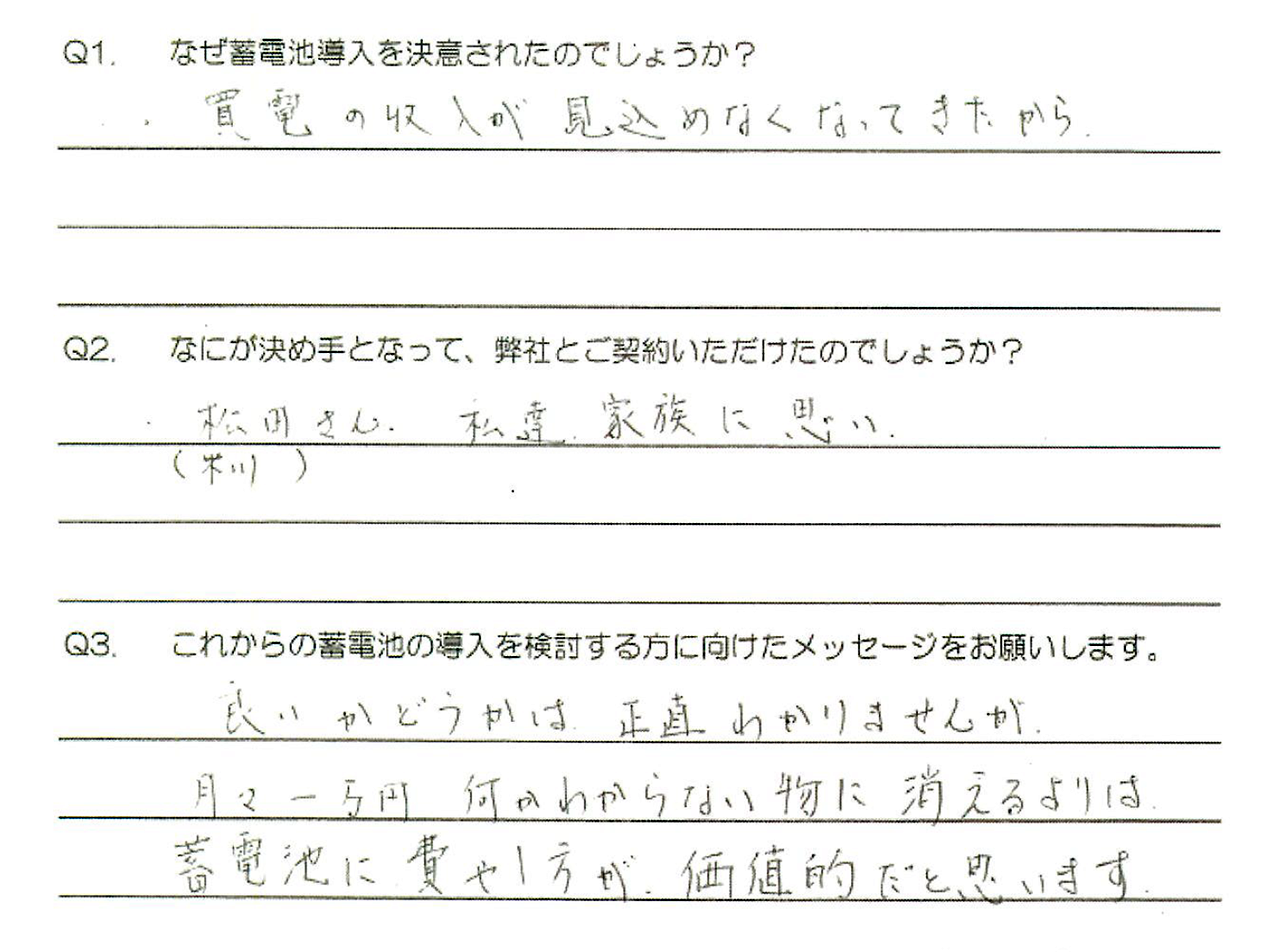 Q1. なぜ蓄電池導入を決意されたのでしょうか？
買電の収入が見込めなくなってきたから.
Q2. なにが決め手となって、弊社とご契約いただけたのでしょうか？
松田さん. 私達. 家族に思い.
Q3. これからの蓄電池の導入を検討する方に向けたメッセージをお願いします。
良いかどうかは 正直わかりませんが.
月々一万円 何かわからない物に 消えるよりは.
蓄電池に費やし方が. 価値的だと思います.